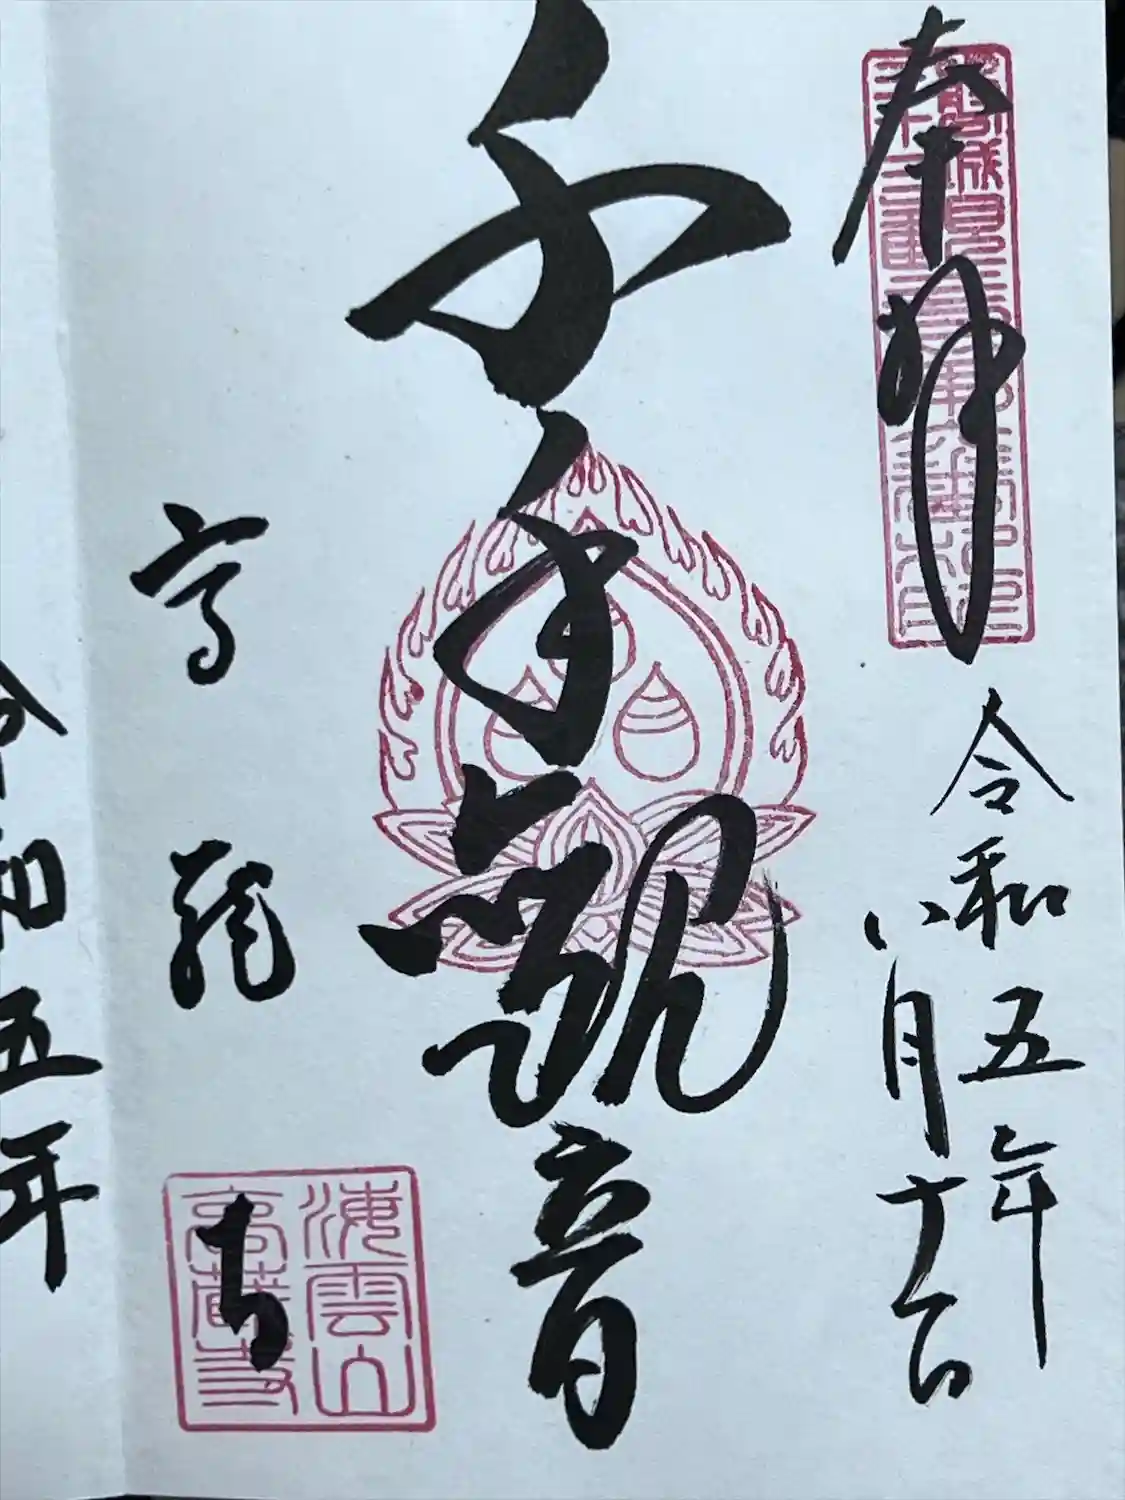 奉拝
令和五年
八月十六日
千手観音
高蔵寺
海雲山
高蔵寺
令和五年